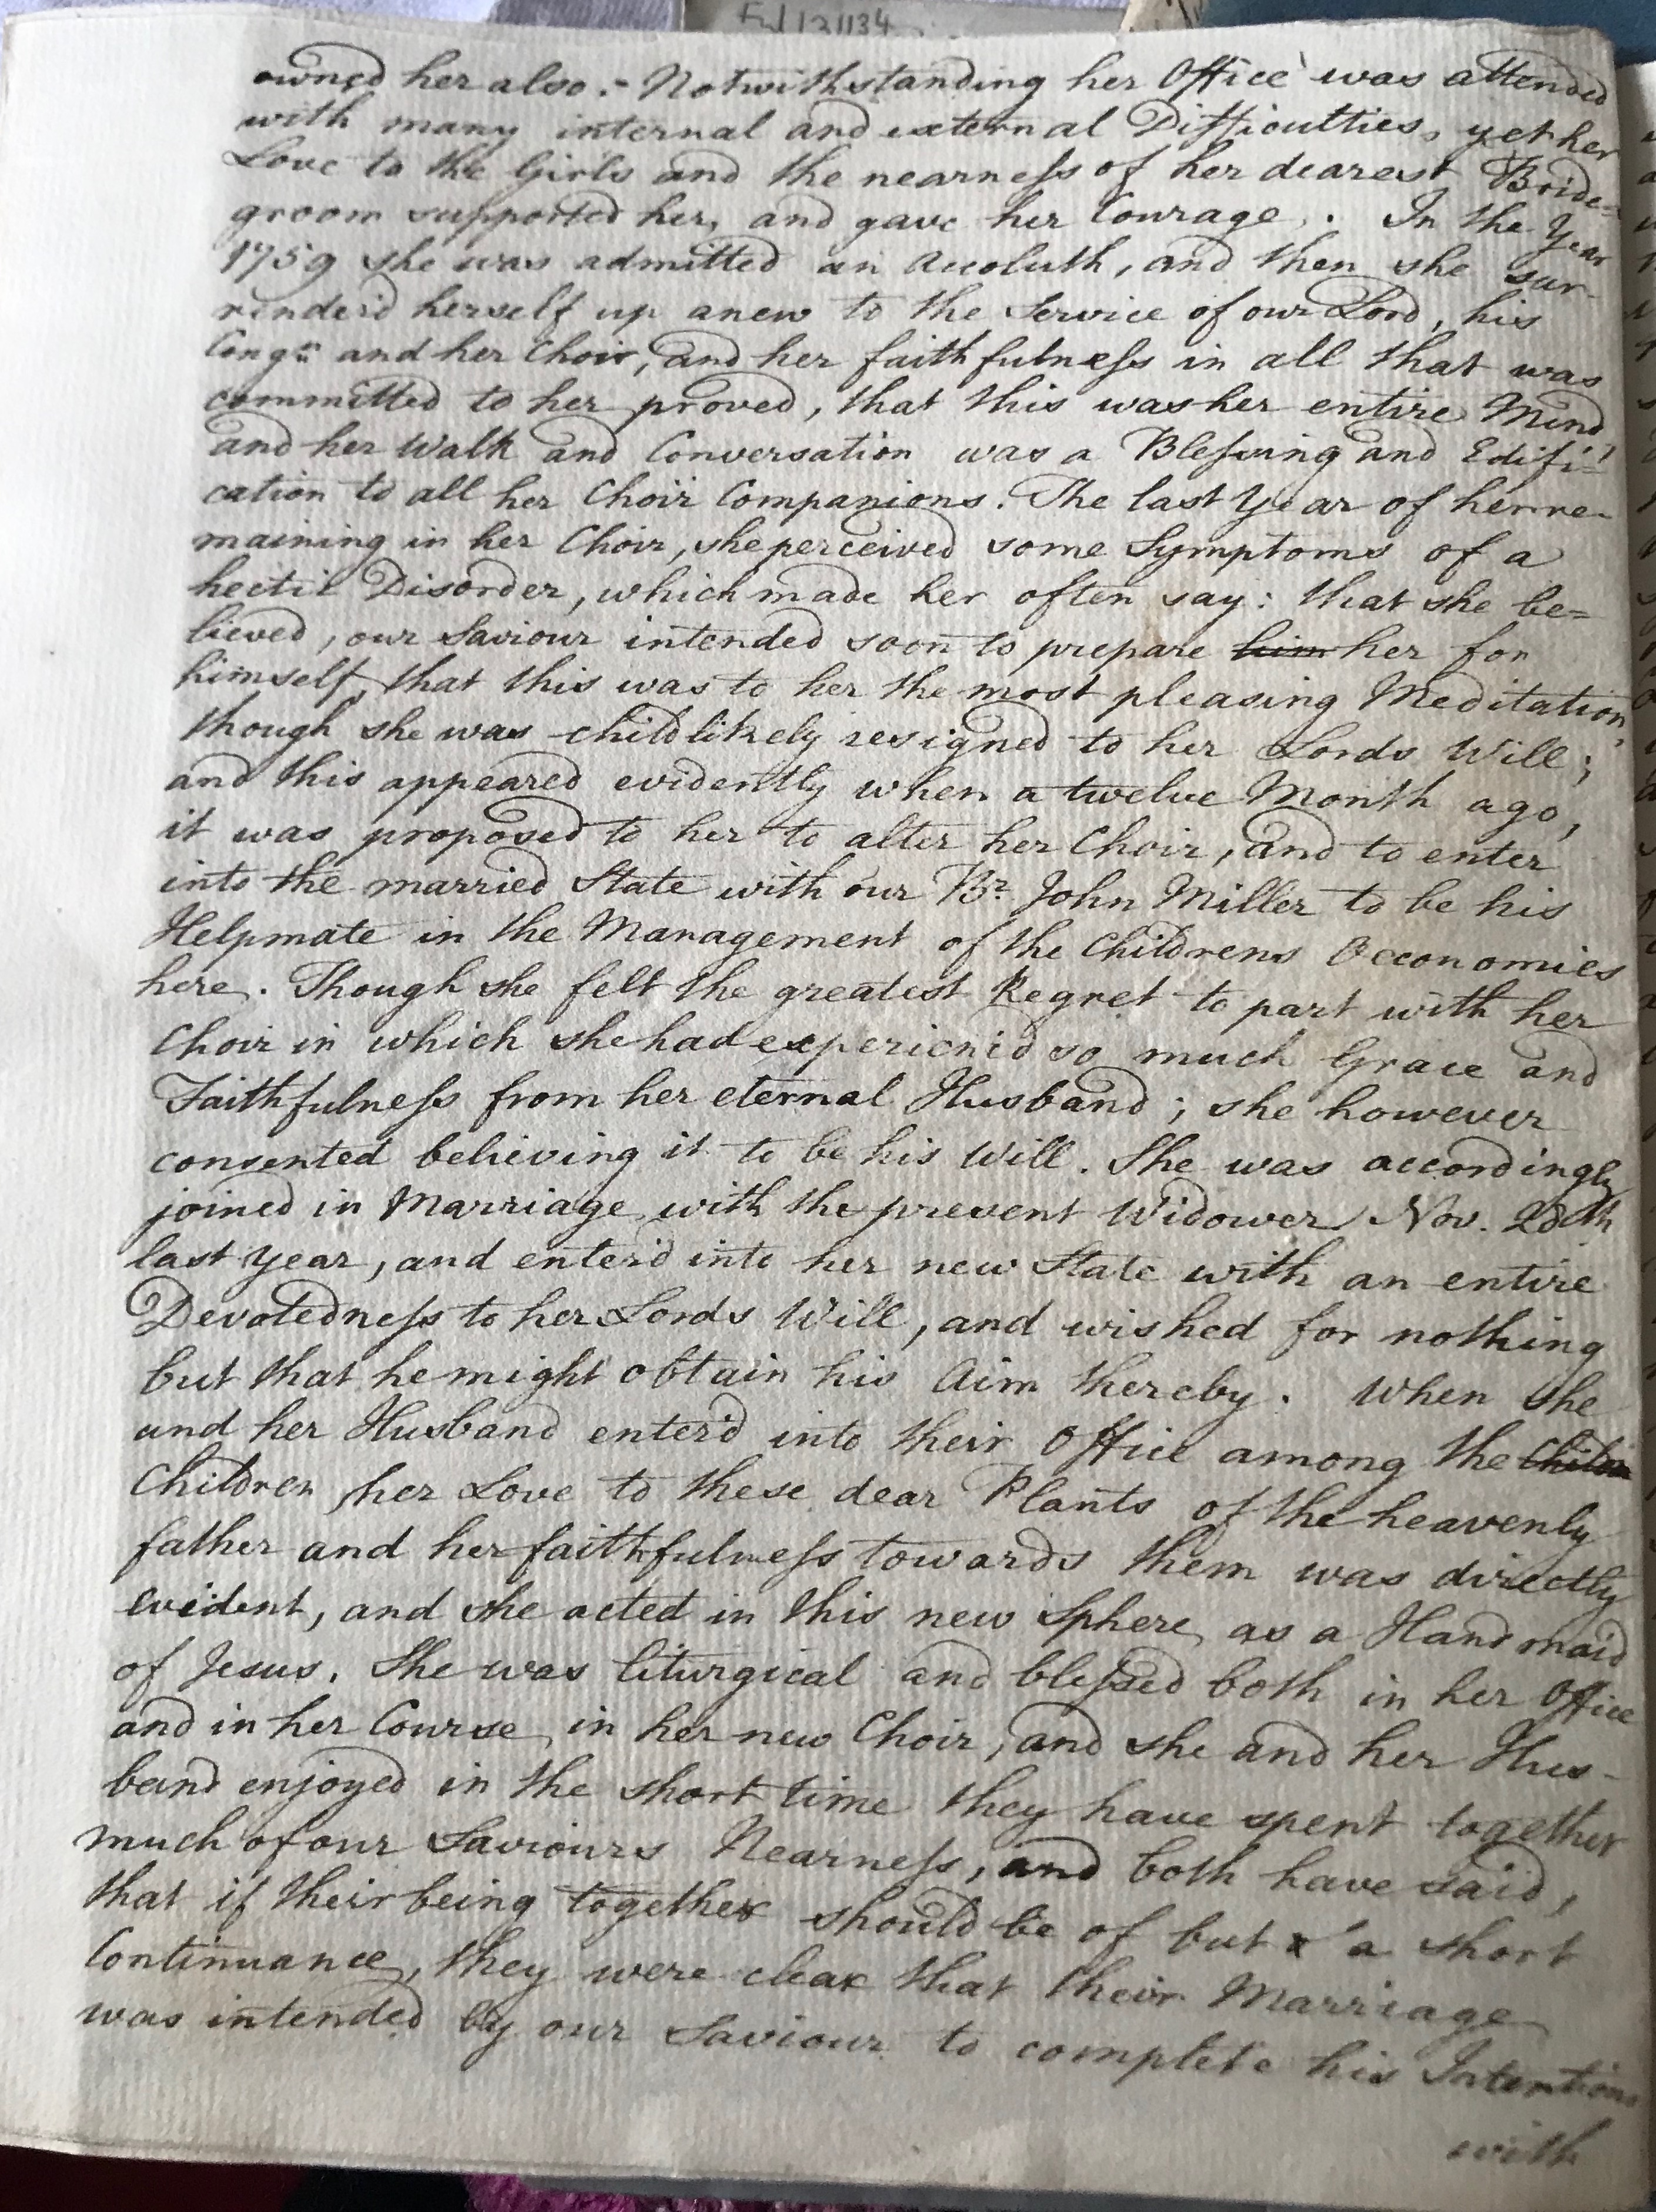 Ful 121134
owned her also. - Notwithstanding her Office was attended
with many internal and external Difficulties, yet her
Love to the Girls and the nearness of her dearest Bride=
groom supported her, and gave her Courage. In the Year
1759 she was admitted an Accoluth, and then she sur-
render'd herself up anew to the Service of our Lord, his
Congn and her Choir, and her faithfulness in all that was
committed to her proved, that this was her entire Mind
and her Walk and Conversation was a Blessing and Edifi=
cation to all her Choir Companions. The last Year of her re-
maining in her Choir, she perceived some Symptoms of a
hectic Disorder, which made her often say: that she be=
lieved, our Saviour intended soon to prepare him her for
himself, that this was to her the most pleasing Meditation,
though she was childlikely resigned to her Lords Will;
and this appeared evidently when a twelve Month ago,
it was proposed to her to alter her Choir, and to enter
into the married State with our Br. John Miller to be his
Helpmate in the Management of the Childrens Oeconomies
here. Though she felt the greatest Regret to part with her
Choir in which she had experienc'd so much Grace and
Faithfulness from her eternal Husband; she however
consented believing it to be his Will. She was accordingly
joined in Marriage with the present Widower Nov. 28th
last Year, and enter'd into her new State with an entire
Devotedness to her Lords Will, and wished for nothing
but that he might obtain his Aim thereby. When she
and her Husband enter'd into their Office among the
Children, her Love to these dear Plants of the heavenly
father and her faithfulness towards them was directly
evident, and she acted in this new Sphere, as a Handmaid
of Jesus. She was liturgical and blessed both in her Office
and in her Course, in her new Choir, and she and her Hus-
band enjoyed in the short time they have spent together
much of our Saviours Nearness, and both have said,
that if their being together should be of but a short
Continuance, they were clear that their Marriage
was intended by our Saviour to complete his Intentions
with